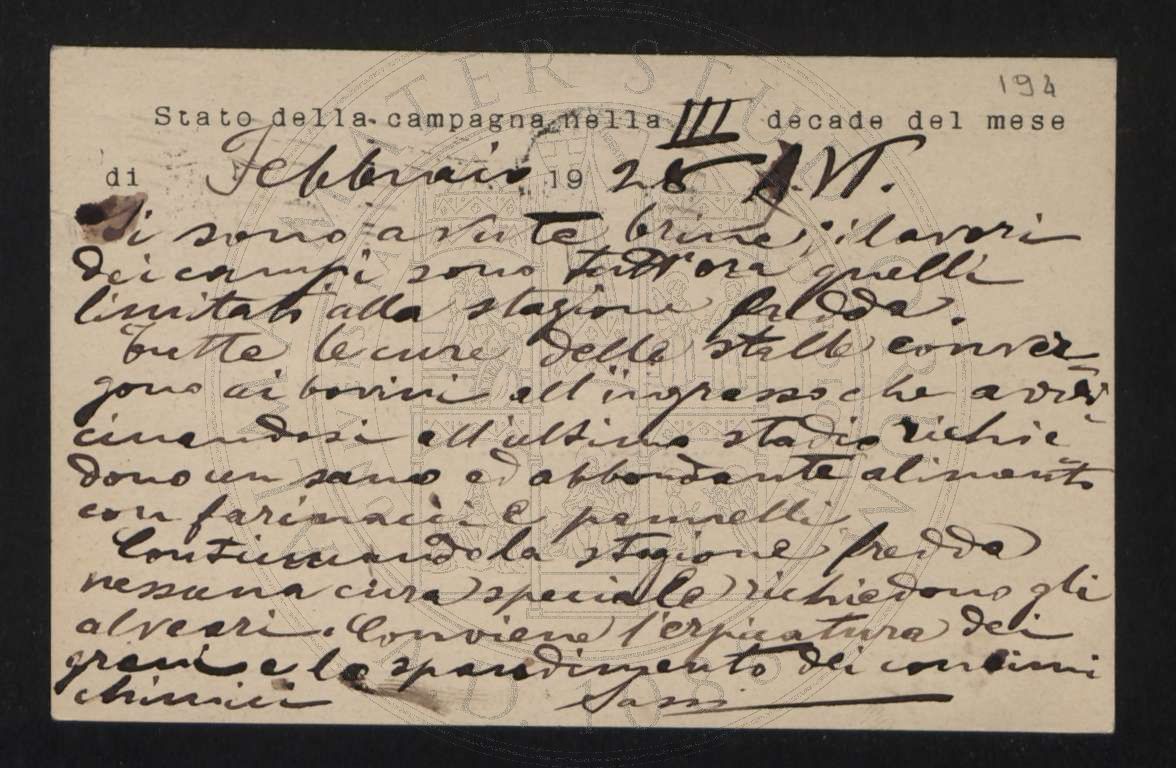 194
Stato della campagna nella III decade del mese
di Febbraio 1928 A. VI.
Si sono avute brine; i lavori
dei campi sono tutt'ora quelli
limitati alla stagione fredda.
Tutte le cure delle stalle conver-
gono ai bovini all'ingrasso che avvi-
cinandosi all'ultimo stadio richie
dono un sano ed abbondante alimento
con farinacei e pannelli
Continuando la stagione fredda
nessuna cura speciale richiedono gli
alveari. Conviene l'erpicatura dei
grani e lo spandimento dei concimi
chimici Sassi